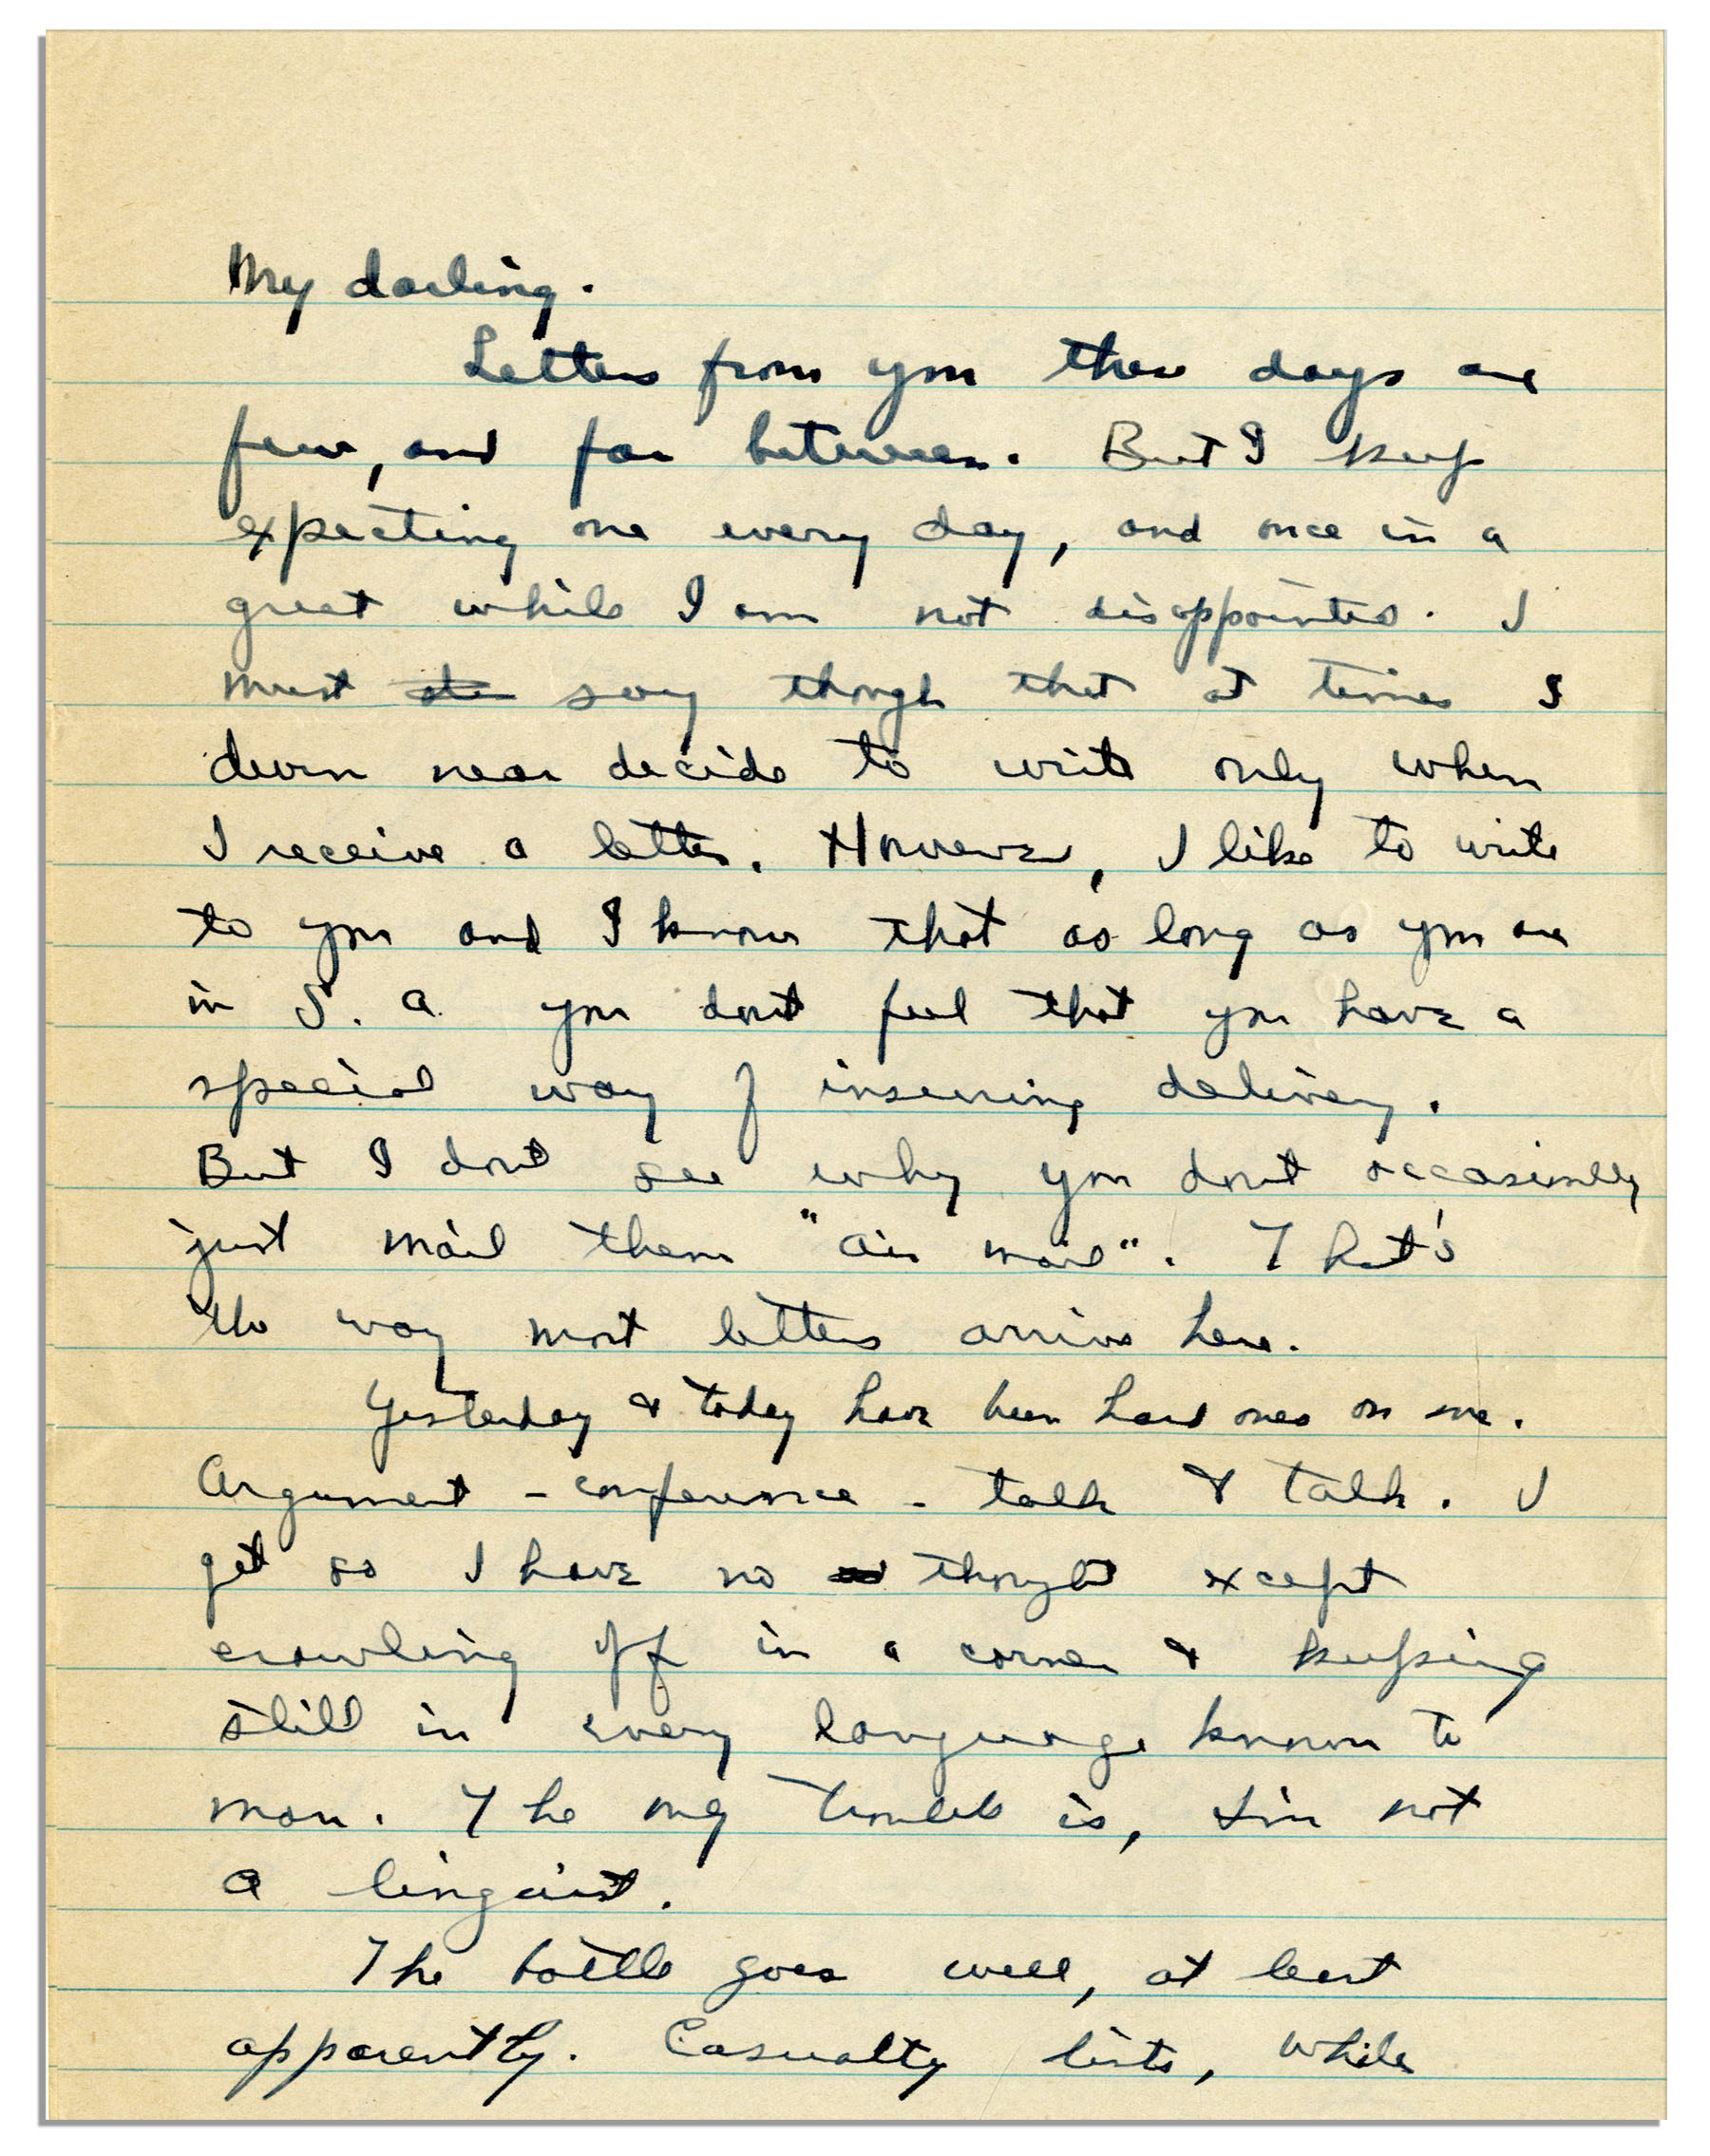 My darling.
Letters from you these days are
few, and far between. But I keep
expecting one every day, and once in a
great while I am not disappointed. I
must say though that at times I
durn near decide to write only when
I receive a letter. However, I like to write
to you and I know that as long as you are
in S. A. you dont feel that you have a
special way of insuring delivery.
But I dont see why you dont occasionally
just mail them "air mail". That's
the way most letters arrive here.
Yesterday & today have been hard ones on me.
Argument - conference - talk & talk. I
get so I have no thought except
crawling off in a corner & keeping
still in every language known to
man. The only trouble is, I'm not
a linguist.
The battle goes well, at least
apparently. Casualty lists, while